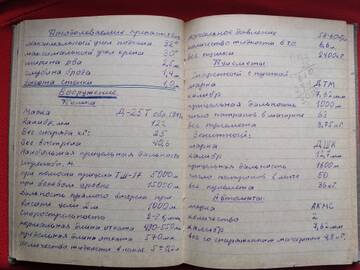 Преодолеваемые препятствия
максимальный угол подъема 32°
максимальный угол крена 30°
ширина рва 2,5 м
глубина брода 1,4 м
высота стенки 1,0 м
Вооружение
Пушка
Марка Д-25Т
калибр мм 122
вес снаряда кг. 25
вес выстрела
прицельная дальность
стрельбы м.
при помощи прицела ТШ-17 5000 м
при боковом уровне 15000 м
дальность прямого выстрела при
высоте цели 2 м. 1000 м
Скорострельность 2-3
нормальная длина отката
предельная длина отката 570 мм.
количество жидкости в
давление
количество жидкости
вес пушки 2400 кг
Пулеметы
Спаренный с пушкой:
марка ДТМ
калибр 7,62 мм
прицельная дальность 1000 м
число патронов в магазине 63
вес пулемета
Зенитный:
марка ДШК
калибр 12,7 мм
прицельная дальность
число патронов в ленте 50
вес пулемета
Автоматы
марка АКМС
количество 2
калибр 7,62 мм
вес со снаряженным магазином